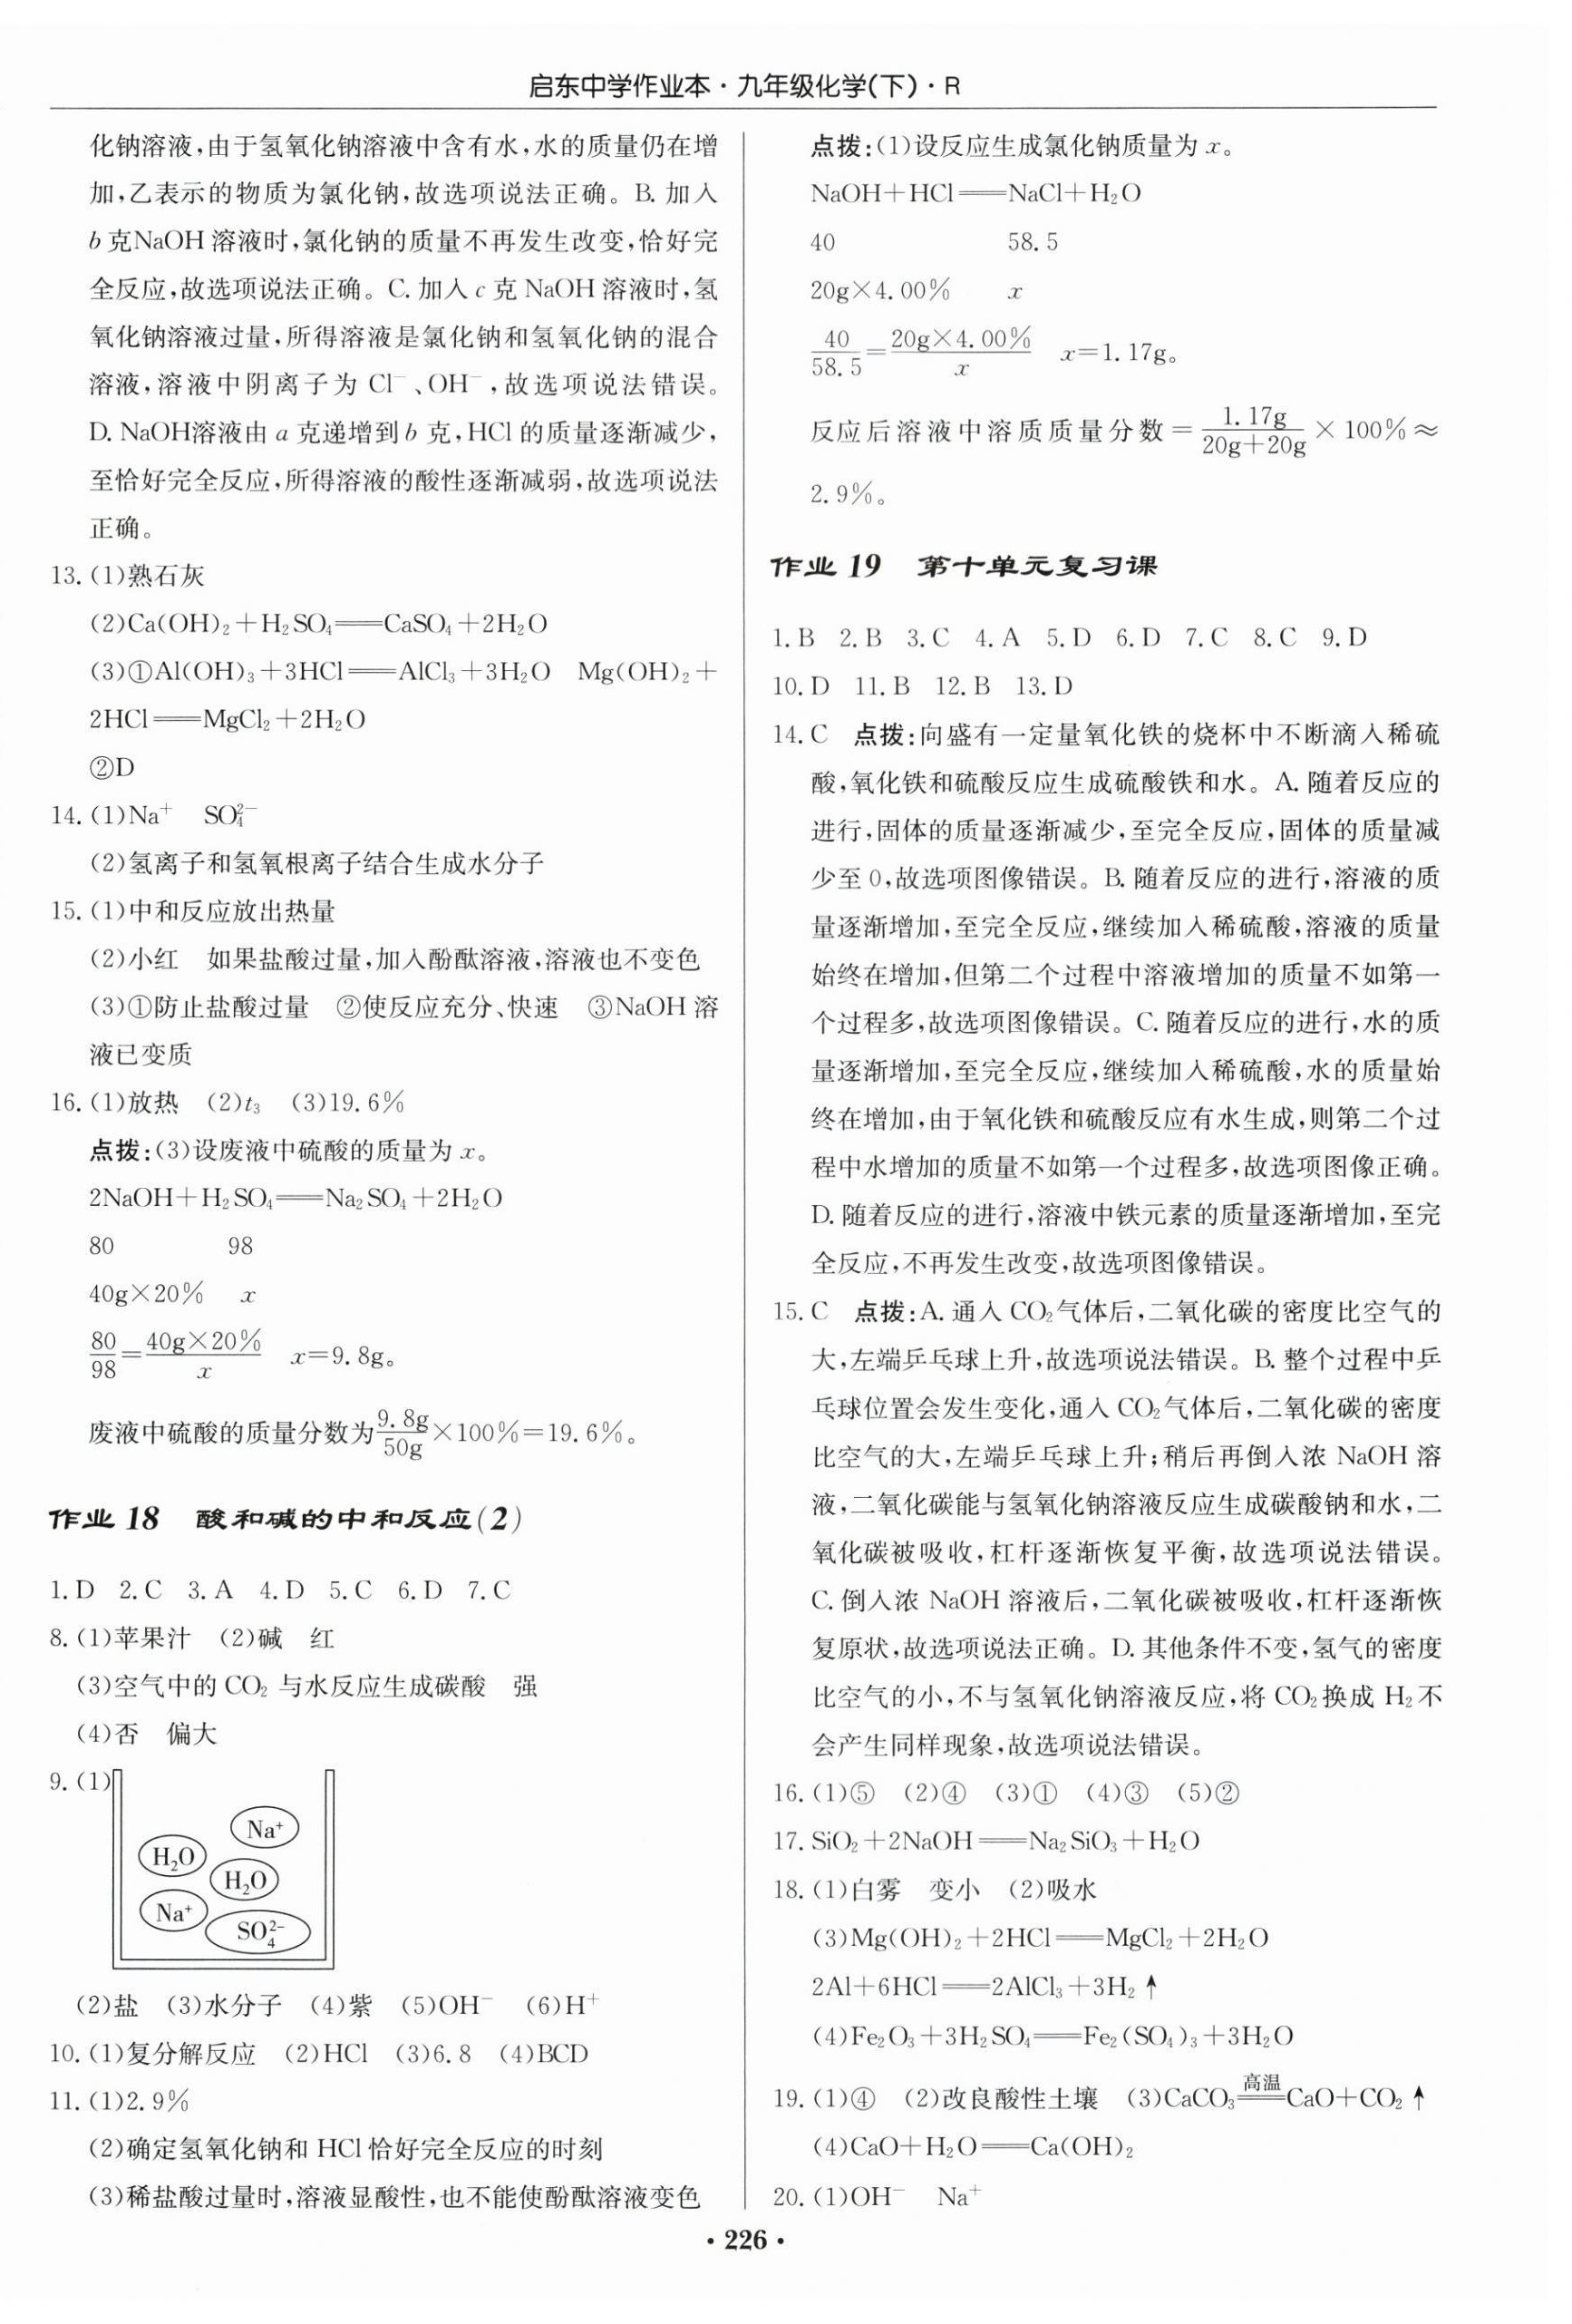 启东中学作业本·九年级化学(下)·R
化钠溶液,由于氢氧化钠溶液中含有水,水的质量仍在增
加,乙表示的物质为氯化钠,故选项说法正确。B. 加入
b 克NaOH 溶液时,氯化钠的质量不再发生改变,恰好完
全反应,故选项说法正确。C. 加入 c 克 NaOH 溶液时,氢
氧化钠溶液过量,所得溶液是氯化钠和氢氧化钠的混合
溶液,溶液中阴离子为 Cl⁻、OH⁻,故选项说法错误。
D. NaOH溶液由 a 克递增到 b 克,HCl 的质量逐渐减少,
至恰好完全反应,所得溶液的酸性逐渐减弱,故选项说法
正确。
13. (1)熟石灰
(2)Ca(OH)₂+H₂SO₄══CaSO₄+2H₂O
(3)①Al(OH)₃+3HCl══AlCl₃+3H₂O Mg(OH)₂+
2HCl══MgCl₂+2H₂O
②D
14. (1)Na⁺ SO₄²⁻
(2)氢离子和氢氧根离子结合生成水分子
15. (1)中和反应放出热量
(2)小红 如果盐酸过量,加入酚酞溶液,溶液也不变色
(3)①防止盐酸过量 ②使反应充分、快速 ③NaOH 溶
液已变质
16. (1)放热 (2)t₃ (3)19.6%
点拨:(3)设废液中硫酸的质量为 x。
2NaOH+H₂SO₄══Na₂SO₄+2H₂O
80 98
40g×20% x
80/98=40g×20%/x x=9.8g。
废液中硫酸的质量分数为9.8g/50g×100%=19.6%。
作业 18 酸和碱的中和反应(2)
1. D 2. C 3. A 4. D 5. C 6. D 7. C
8. (1)苹果汁 (2)碱 红
(3)空气中的 CO₂ 与水反应生成碳酸 强
(4)否 偏大
9. (1)
Na⁺
H₂O
H₂O
Na⁺
SO₄²⁻
(2)盐 (3)水分子 (4)紫 (5)OH⁻ (6)H⁺
10. (1)复分解反应 (2)HCl (3)6.8 (4)BCD
11. (1)2.9%
(2)确定氢氧化钠和 HCl 恰好完全反应的时刻
(3)稀盐酸过量时,溶液显酸性,也不能使酚酞溶液变色
点拨:(1)设反应生成氯化钠质量为 x。
NaOH+HCl══NaCl+H₂O
40 58.5
20g×4.00% x
40/58.5=20g×4.00%/x x=1.17g。
反应后溶液中溶质质量分数=1.17g/(20g+20g)×100%≈
2.9%。
作业 19 第十单元复习课
1. B 2. B 3. C 4. A 5. D 6. D 7. C 8. C 9. D
10. D 11. B 12. B 13. D
14. C 点拨:向盛有一定量氧化铁的烧杯中不断滴入稀硫
酸,氧化铁和硫酸反应生成硫酸铁和水。A. 随着反应的
进行,固体的质量逐渐减少,至完全反应,固体的质量减
少至 0,故选项图像错误。B. 随着反应的进行,溶液的质
量逐渐增加,至完全反应,继续加入稀硫酸,溶液的质量
始终在增加,但第二个过程中溶液增加的质量不如第一
个过程多,故选项图像错误。C. 随着反应的进行,水的质
量逐渐增加,至完全反应,继续加入稀硫酸,水的质量始
终在增加,由于氧化铁和硫酸反应有水生成,则第二个过
程中水增加的质量不如第一个过程多,故选项图像正确。
D. 随着反应的进行,溶液中铁元素的质量逐渐增加,至完
全反应,不再发生改变,故选项图像错误。
15. C 点拨:A. 通入 CO₂ 气体后,二氧化碳的密度比空气的
大,左端乒乓球上升,故选项说法错误。B. 整个过程中乒
乓球位置会发生变化,通入 CO₂ 气体后,二氧化碳的密度
比空气的大,左端乒乓球上升;稍后再倒入浓 NaOH 溶
液,二氧化碳能与氢氧化钠溶液反应生成碳酸钠和水,二
氧化碳被吸收,杠杆逐渐恢复平衡,故选项说法错误。
C. 倒入浓 NaOH 溶液后,二氧化碳被吸收,杠杆逐渐恢
复原状,故选项说法正确。D. 其他条件不变,氢气的密度
比空气的小,不与氢氧化钠溶液反应,将 CO₂ 换成 H₂ 不
会产生同样现象,故选项说法错误。
16. (1)⑤ (2)④ (3)① (4)③ (5)②
17. SiO₂+2NaOH══Na₂SiO₃+H₂O
18. (1)白雾 变小 (2)吸水
(3)Mg(OH)₂+2HCl══MgCl₂+2H₂O
2Al+6HCl══2AlCl₃+3H₂↑
(4)Fe₂O₃+3H₂SO₄══Fe₂(SO₄)₃+3H₂O
19. (1)④ (2)改良酸性土壤 (3)CaCO₃═高温═CaO+CO₂↑
(4)CaO+H₂O══Ca(OH)₂
20. (1)OH⁻ Na⁺
· 226 ·